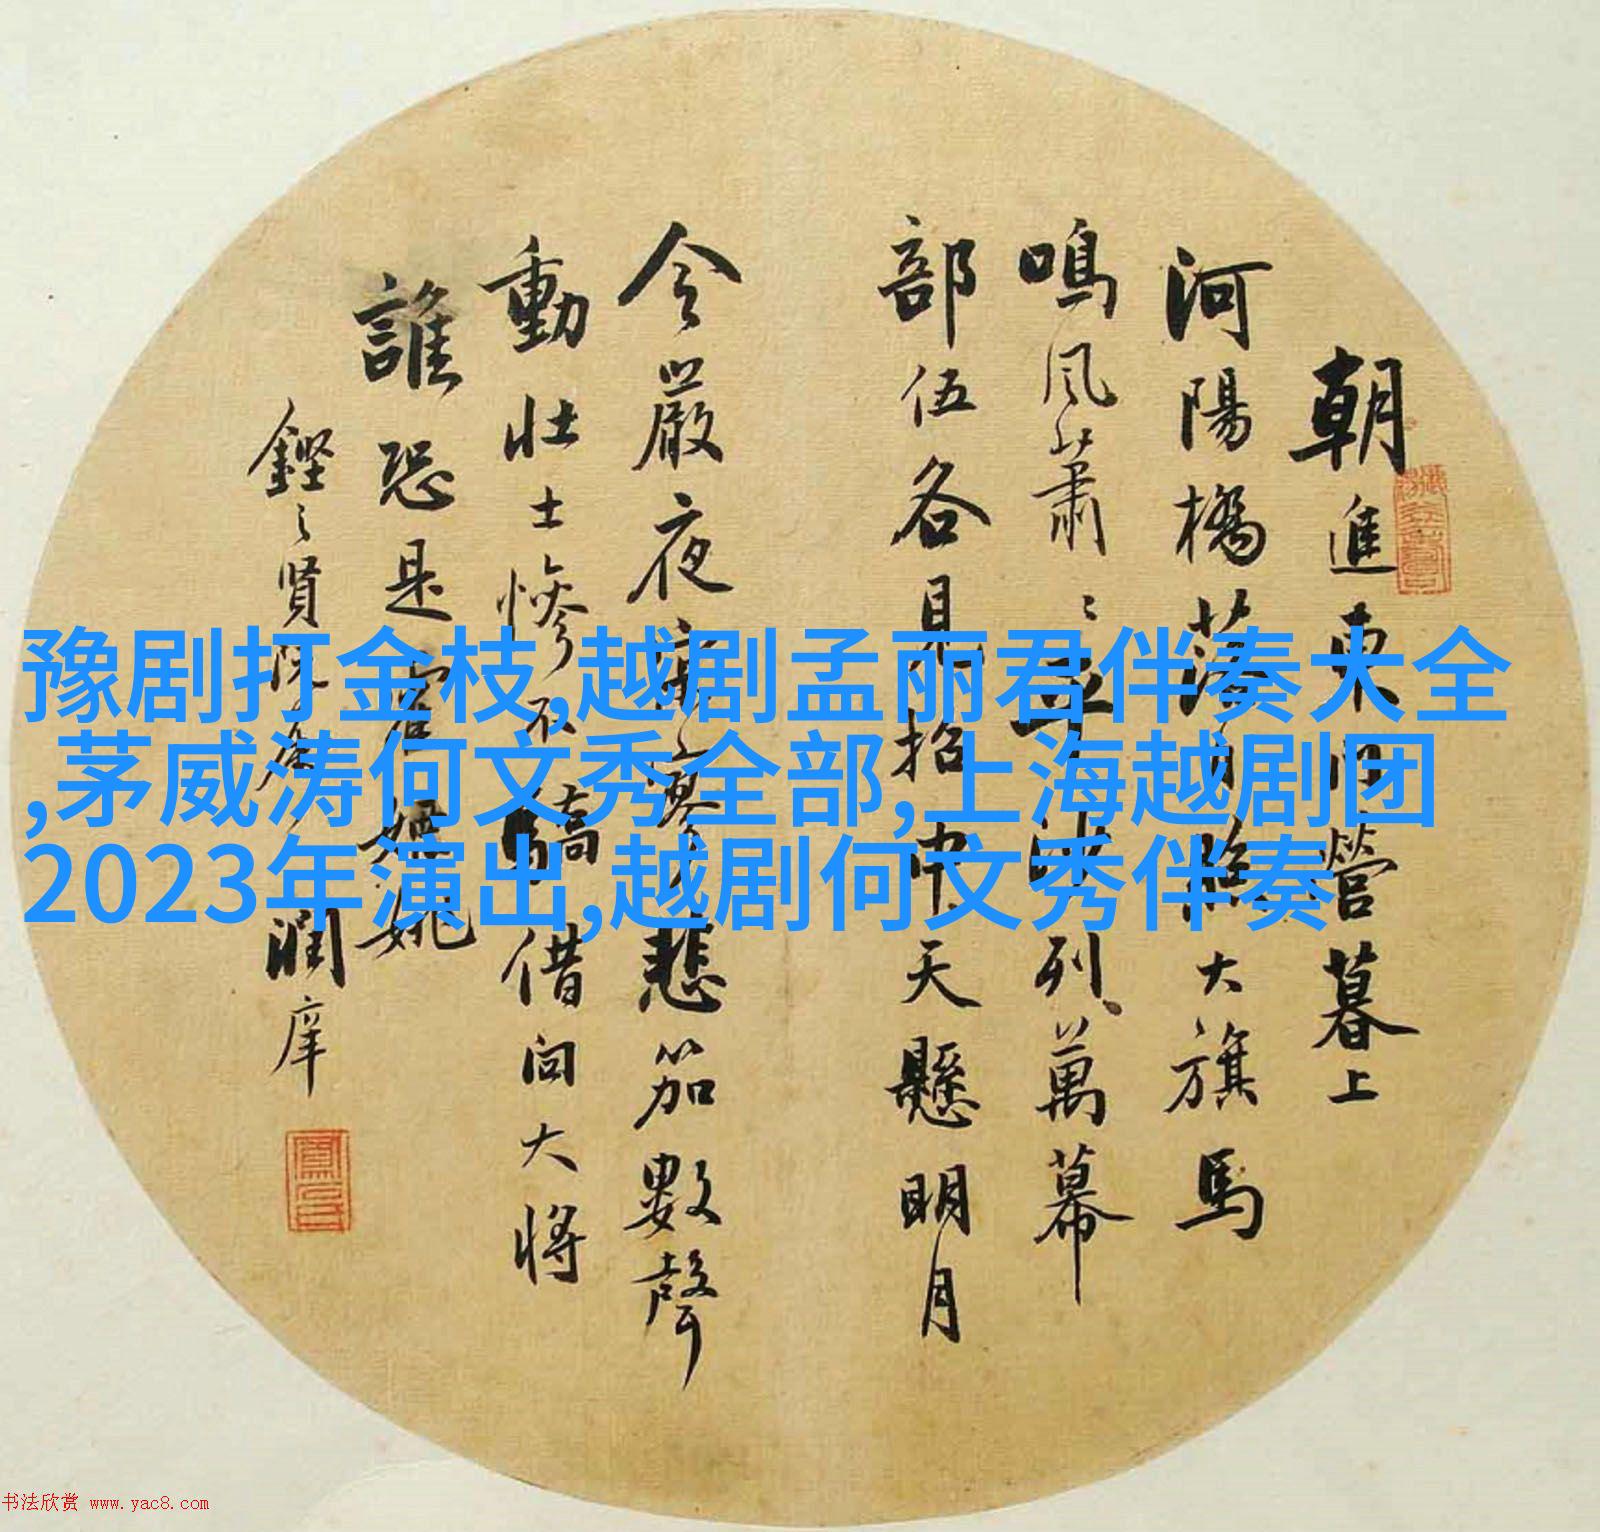 朝進東門營暮上
河陽橋落日照大旗馬
鳴風蕭〻平沙列萬幕
部伍各見招中天懸明月
令嚴夜寂寥悲笳數聲
動壯士慘不驕借問大將
誰恐是霍嫖姚
鏗之賢阮 潤庠
豫剧打金枝,越剧孟丽君伴奏大全
,茅威涛何文秀全部,上海越剧团
2023年演出,越剧何文秀伴奏
书法欣赏 www.yac8.com